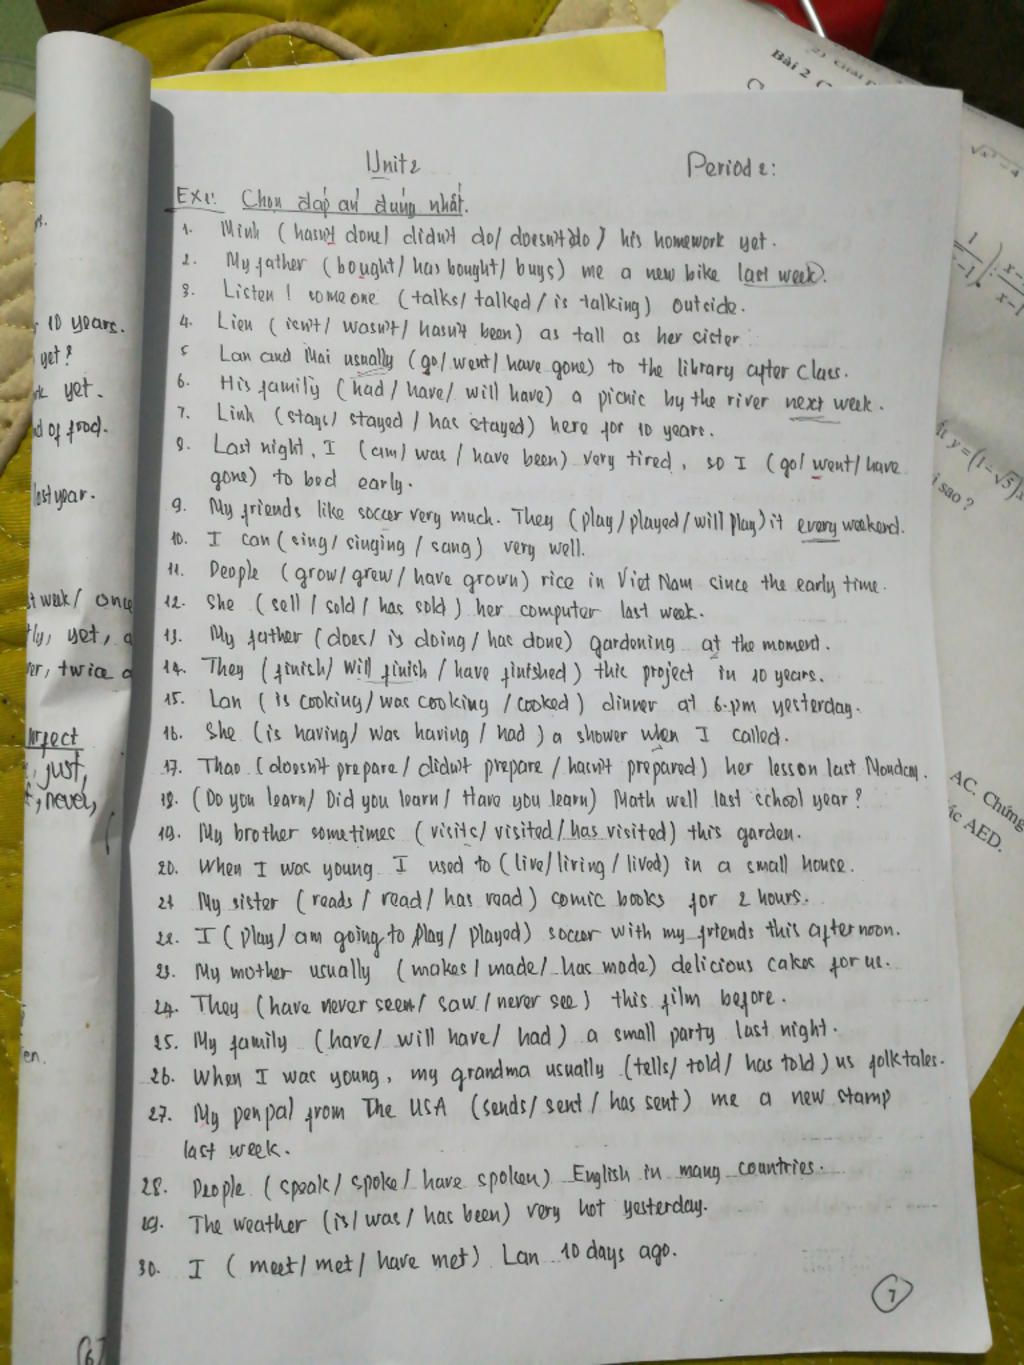 Unit 2
Period 2:
EX1: Chọn đáp án đúng nhất.
1. Minh (hasn't done/ didn't do/ doesn't do) his homework yet.
2. My father (bought/ has bought/ buys) me a new bike last week.
3. Listen! someone (talks/ talked/ is talking) outside.
4. Lien (isn't/ wasn't/ hasn't been) as tall as her sister
5 Lan and Mai usually (go/ went/ have gone) to the library after class.
6. His family (had/ have/ will have) a picnic by the river next week.
7. Linh (stays/ stayed/ has stayed) here for 10 years.
8. Last night, I (am/ was/ have been) very tired, so I (go/ went/ have
gone) to bed early.
9. My friends like soccer very much. They (play/ played/ will play) it every weekend.
10. I can (sing/ singing/ sang) very well.
11. People (grow/ grew/ have grown) rice in Viet Nam since the early time.
12. She (sell/ sold/ has sold) her computer last week.
13. My father (does/ is doing/ has done) gardening at the moment.
14. They (finish/ will finish/ have finished) this project in 10 years.
15. Lan (is cooking/ was cooking/ cooked) dinner at 6.pm yesterday.
16. She (is having/ was having/ had) a shower when I called.
17. Thao (doesn't prepare/ didn't prepare/ hasn't prepared) her lesson last Monday.
18. (Do you learn/ Did you learn/ Have you learn) Math well last school year?
19. My brother sometimes (visits/ visited/ has visited) this garden.
20. When I was young I used to (live/ living/ lived) in a small house.
21 My sister (reads/ read/ has read) comic books for 2 hours.
22. I (play/ am going to play/ played) soccer with my friends this afternoon.
23. My mother usually (makes/ made/ has made) delicious cakes for us.
24. They (have never seen/ saw/ never see) this film before.
25. My family (have/ will have/ had) a small party last night.
26. When I was young, my grandma usually (tells/ told/ has told) us folktales.
27. My penpal from The USA (sends/ sent/ has sent) me a new stamp
last week.
28. People (speak/ spoke/ have spoken) English in many countries.
29. The weather (is/ was/ has been) very hot yesterday.
30. I (meet/ met/ have met) Lan 10 days ago.
7
10 years.
yet?
yet.
of food.
last year.
week/ once
yet,
twice
just,
never,
Bài 2
sao?
AC. Chứng
AED.